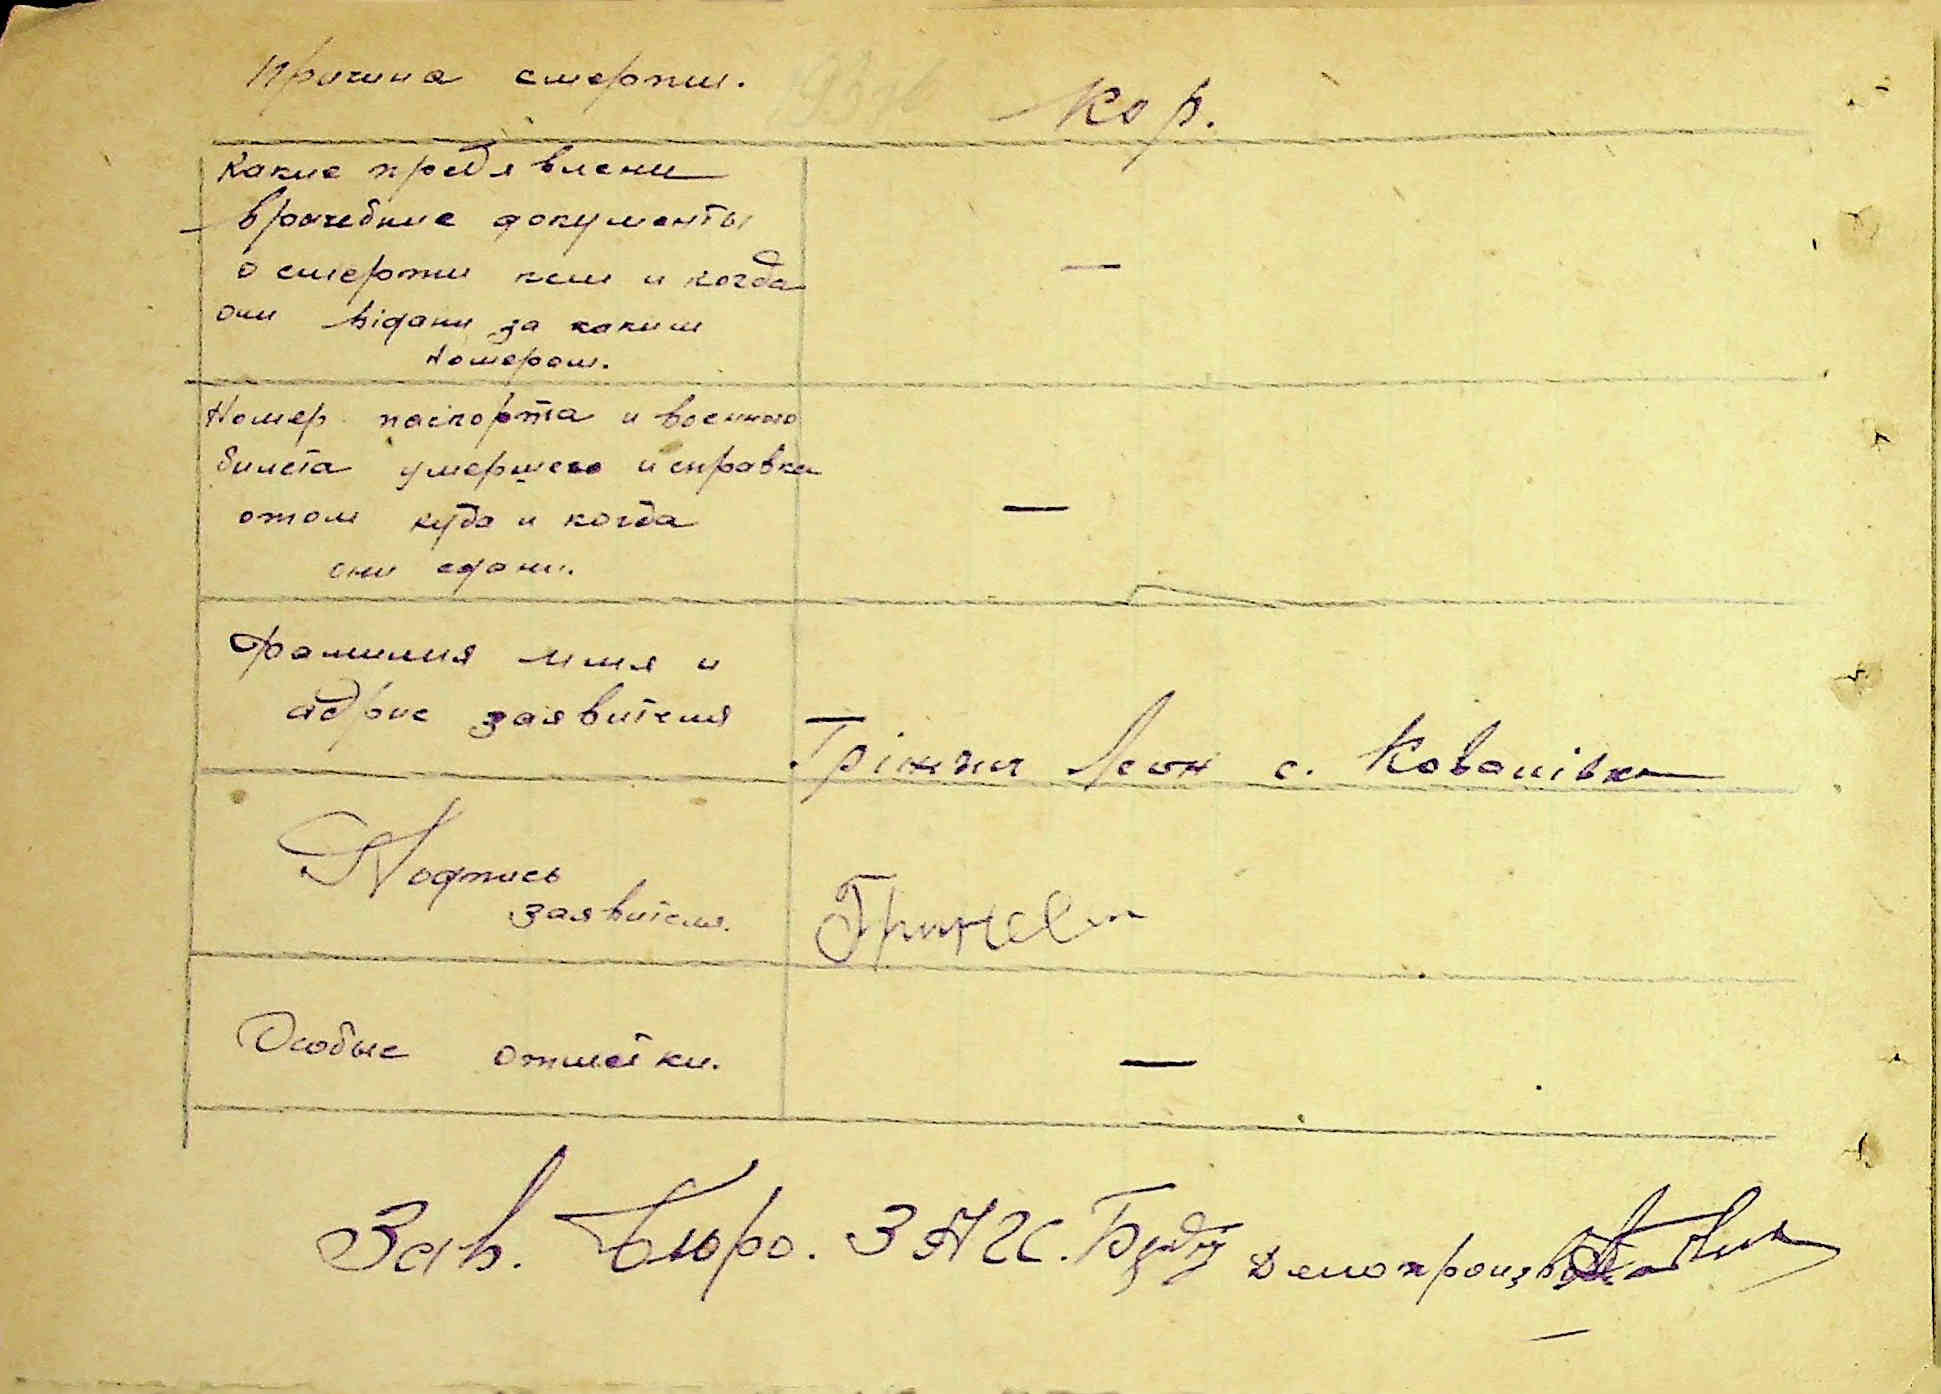 Причина смерти.
Кор.
Какие предявлени
врачебние документы
о смерти кем и когда
они відани за каким
номером.
—
Номер паспорта и военного
билета умершего и справка
отом куда и когда
они сдани.
—
Фамилия имя и
адрис заявителя
Леон с. Ковалівка
Подпись
заявителя.
Особые отметки.
—
Зав. Бюро. ЗАГС.